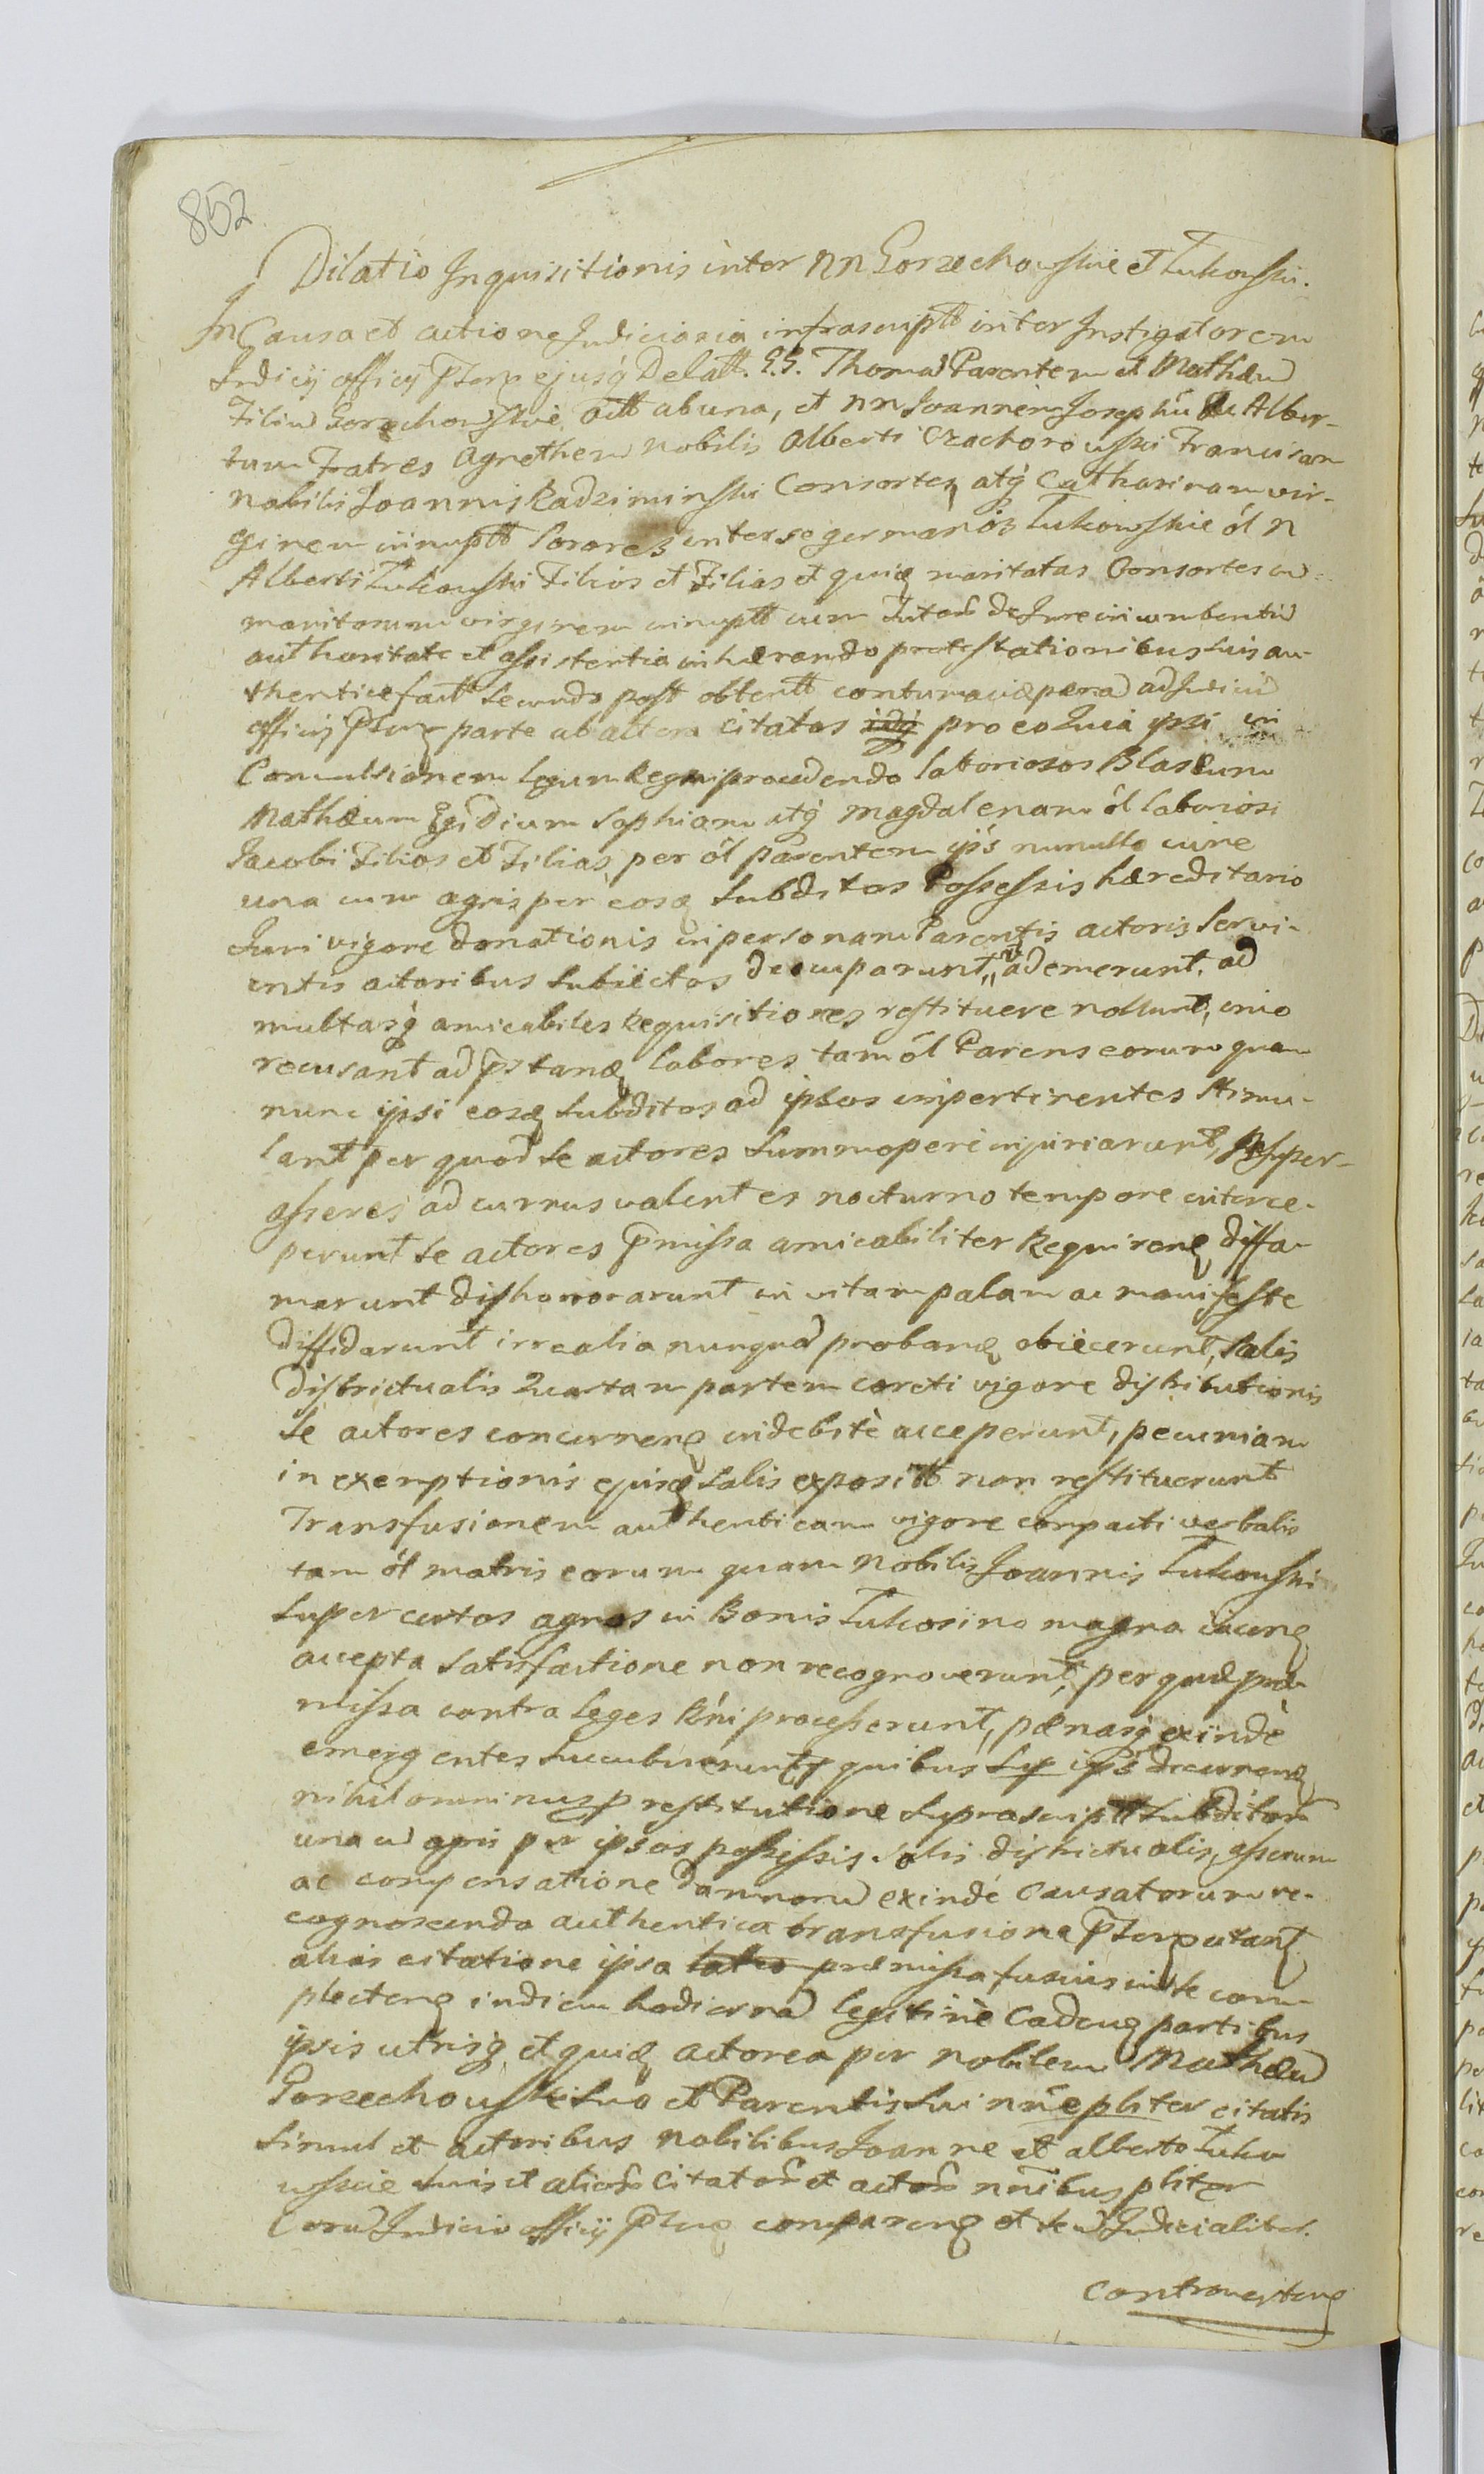 852
Dilatio Inquisitionis inter NN Gorzechowskie et Łukowski.
In Causa et actione Judiciaria infrascriptt inter Instigatorem
Judicij officij ejusq Delatt. G.G. Thomam Parentem et Mathæum
Filium Gorzechowskie actt ab una, et NN Joannem Josephum et Alber-
tum Fratres Agnethem nobilis Alberti Czachorowski Franciscam
nobilis Joannis Radziminski Consortes atq Catharinam vir-
ginem innuptt Sorores inter se germanos Łukowskie ol N
Alberti Łukowski Filios et Filias et quidem maritatas Consortes in
maritorum virginem innuptt cum Tutorum de Jure incumbentium
authoritate et assistentia inhærendo protestationibus suis au-
thentice factt secundo post obtentt contumaciæ pænam ad Judicium
officij parte ab altera citatos idq pro eo Quia ipsi in
Convulsionem legum Regni procedendo laboriosos Blasium
Mathæum Egidium Sophiam atq Magdalenam ol laboriosi
Jacobi Filios et Filias per ol parentem ips nunullo iure
una cum agris per eosd subditos Possessis hæreditario
Juri vigore donationis in personam Parentis actoris servi-
entis actoribus subiectos deocuparunt, ademerunt, ad
multasq amicabiles Requisitiones restituere nollunt, imo
recusant ad pstand labores tam ol Parens eorum quam
nunc ipsi eosd subditos ad ipsos impertinentes stimu-
lant per quod se actores summopere injuriarunt,
asseres ad currus valentes nocturno tempore interce-
perunt se actores pmissa amicabiliter Requirend diffa-
marunt dishonorarunt in vitam palam ac manifeste
diffidarunt irrealia nunquam proband obiecerunt, Salis
districtualis Quartam partem coreti vigore distributionis
se actores concurrend indebitè acceperunt, pecuniam
in exemptionis ejusd Salis expositt non restituerunt
Transfusionem authenticam vigore compacti verbalis
tam ol matris eorum quam nobilis Joannis Łukowski
super certos agros in Bonis Łukosino magna iacend
accepta satisfactione non recognoverunt, per quæ præ-
missa contra leges Rni processerunt, pænasq exinde
emergentes succubuerunt quibus sup ips decernend
nihilominus p restitutione suprascriptt subditorum
una cum agris per ipsos possessis, Salis districtualis, asserum
ac compensatione damnorum exindé causatorum re-
cognoscenda authentica transfusione citant
alias citatione ipsa latio præmissa fusius in se com-
plectend in diem hodiernam legitimè Cadend partibus
ipsis utrisq et quidem actorea per nobilem Mathæum
Gorzechowski suo et Parentis sui nne pliter citatis
simul et actoribus nobilibus Joanne et Alberto Łuko
wskie suis et aliorum citatorum et actorum nnibus pliter
Coram Judicio officij comparend et se cum Judicialiter
Controvertend